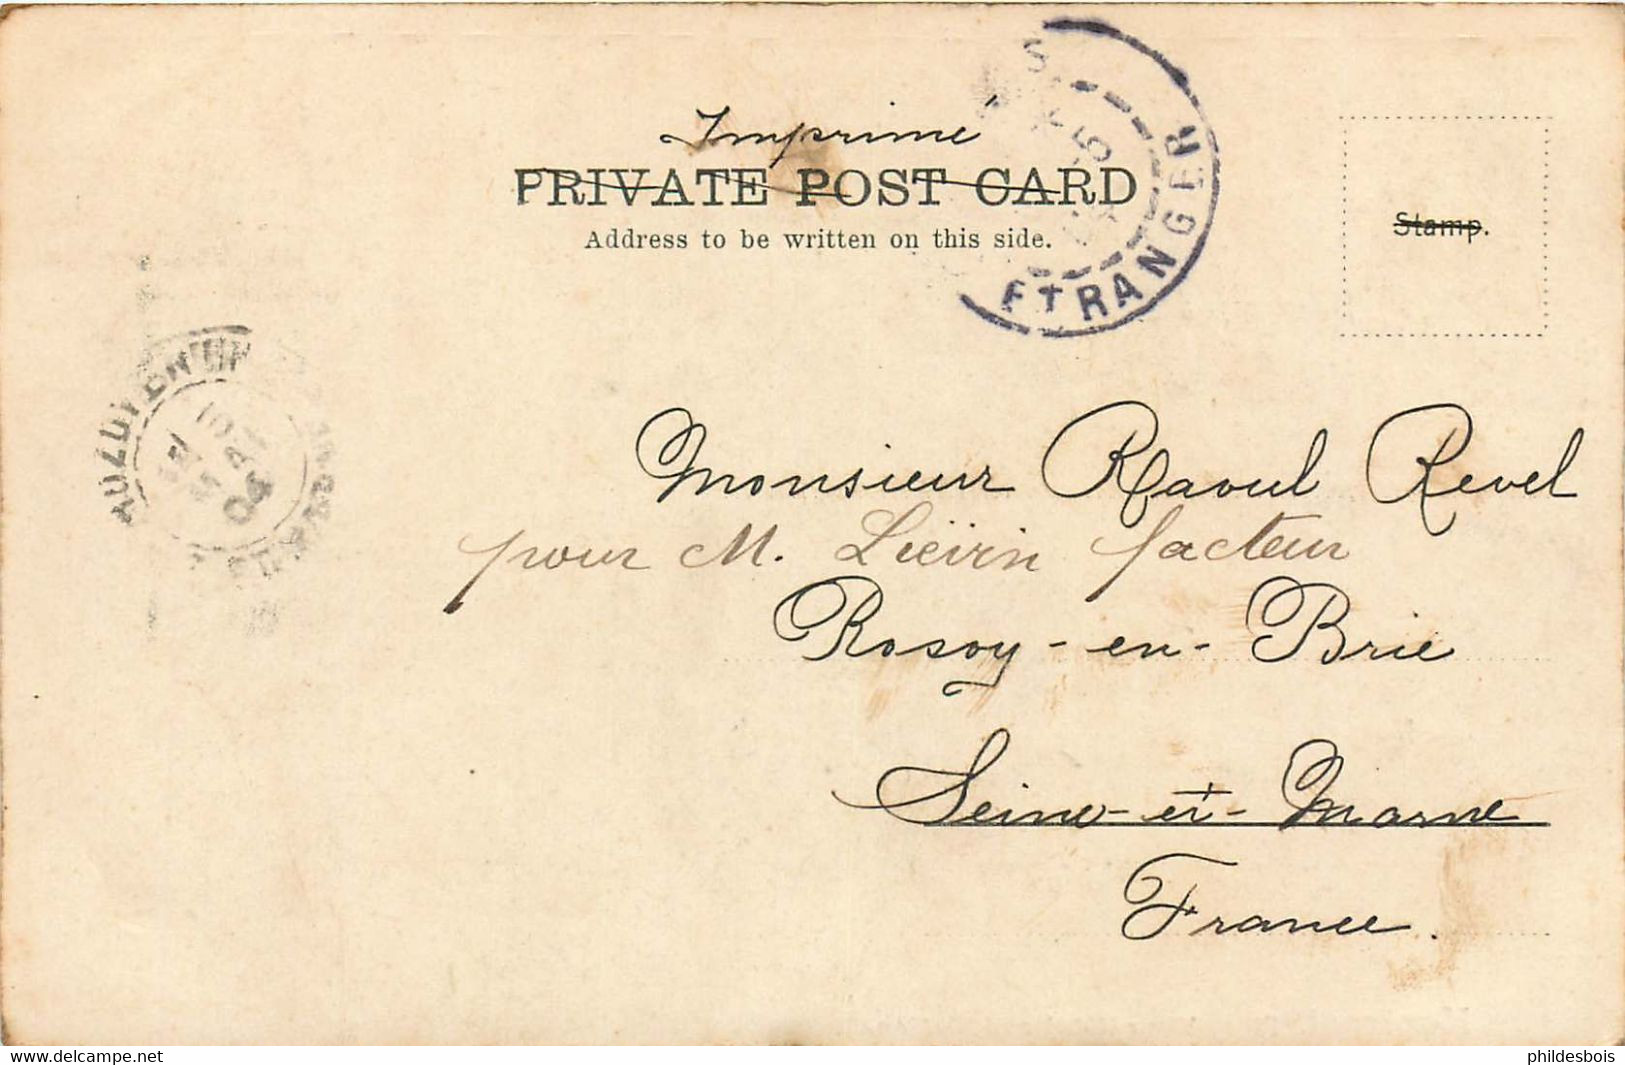 Imprimé
PRIVATE POST CARD
Address to be written on this side.
Stamp.
ETRANGER
Monsieur Raoul Revel
pour M. Liévin facteur
Rosoy-en-Brie
Seine-et-Marne
France.
www.delcampe.net
phildesbois